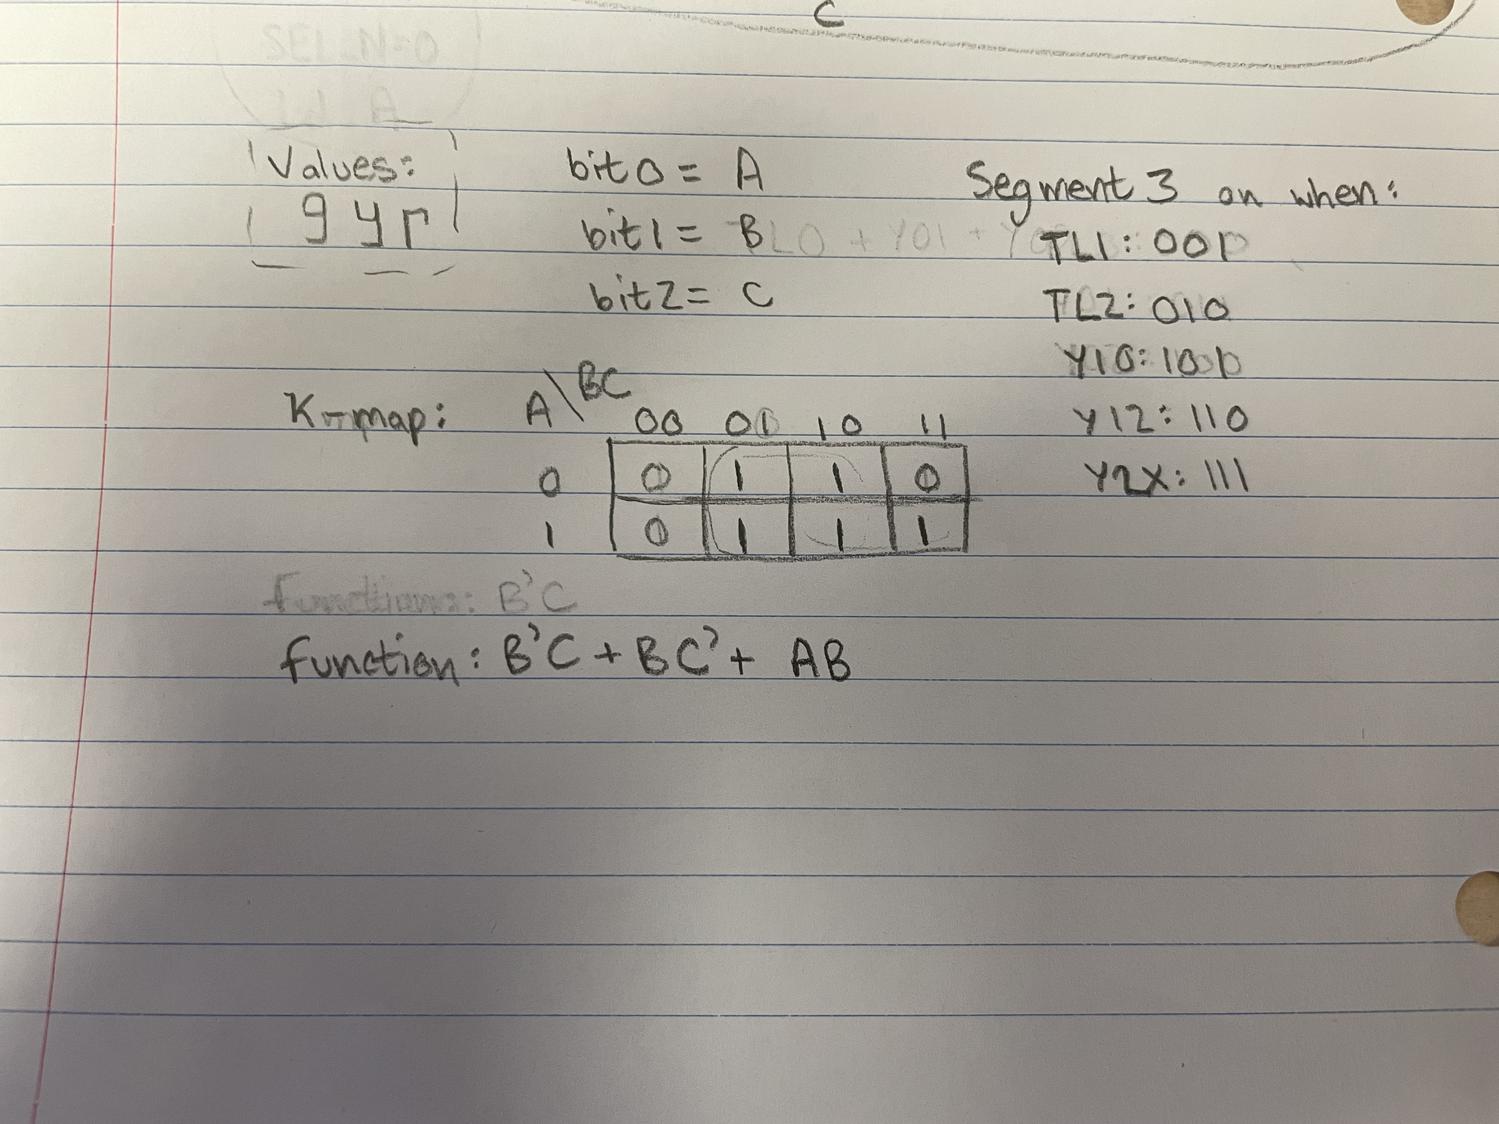 C
SEL N=0
Ld A
Values:
g y r
bit0 = A
bit1 = B
bit2 = C
Segment 3 on when:
TL1: 001
TL2: 010
Y10: 101
Y12: 110
Y2X: 111
K-map:
A\BC
00 01 10 11
0 0 1 1 0
1 0 1 1 1
functions: B'C
function: B'C + BC' + AB